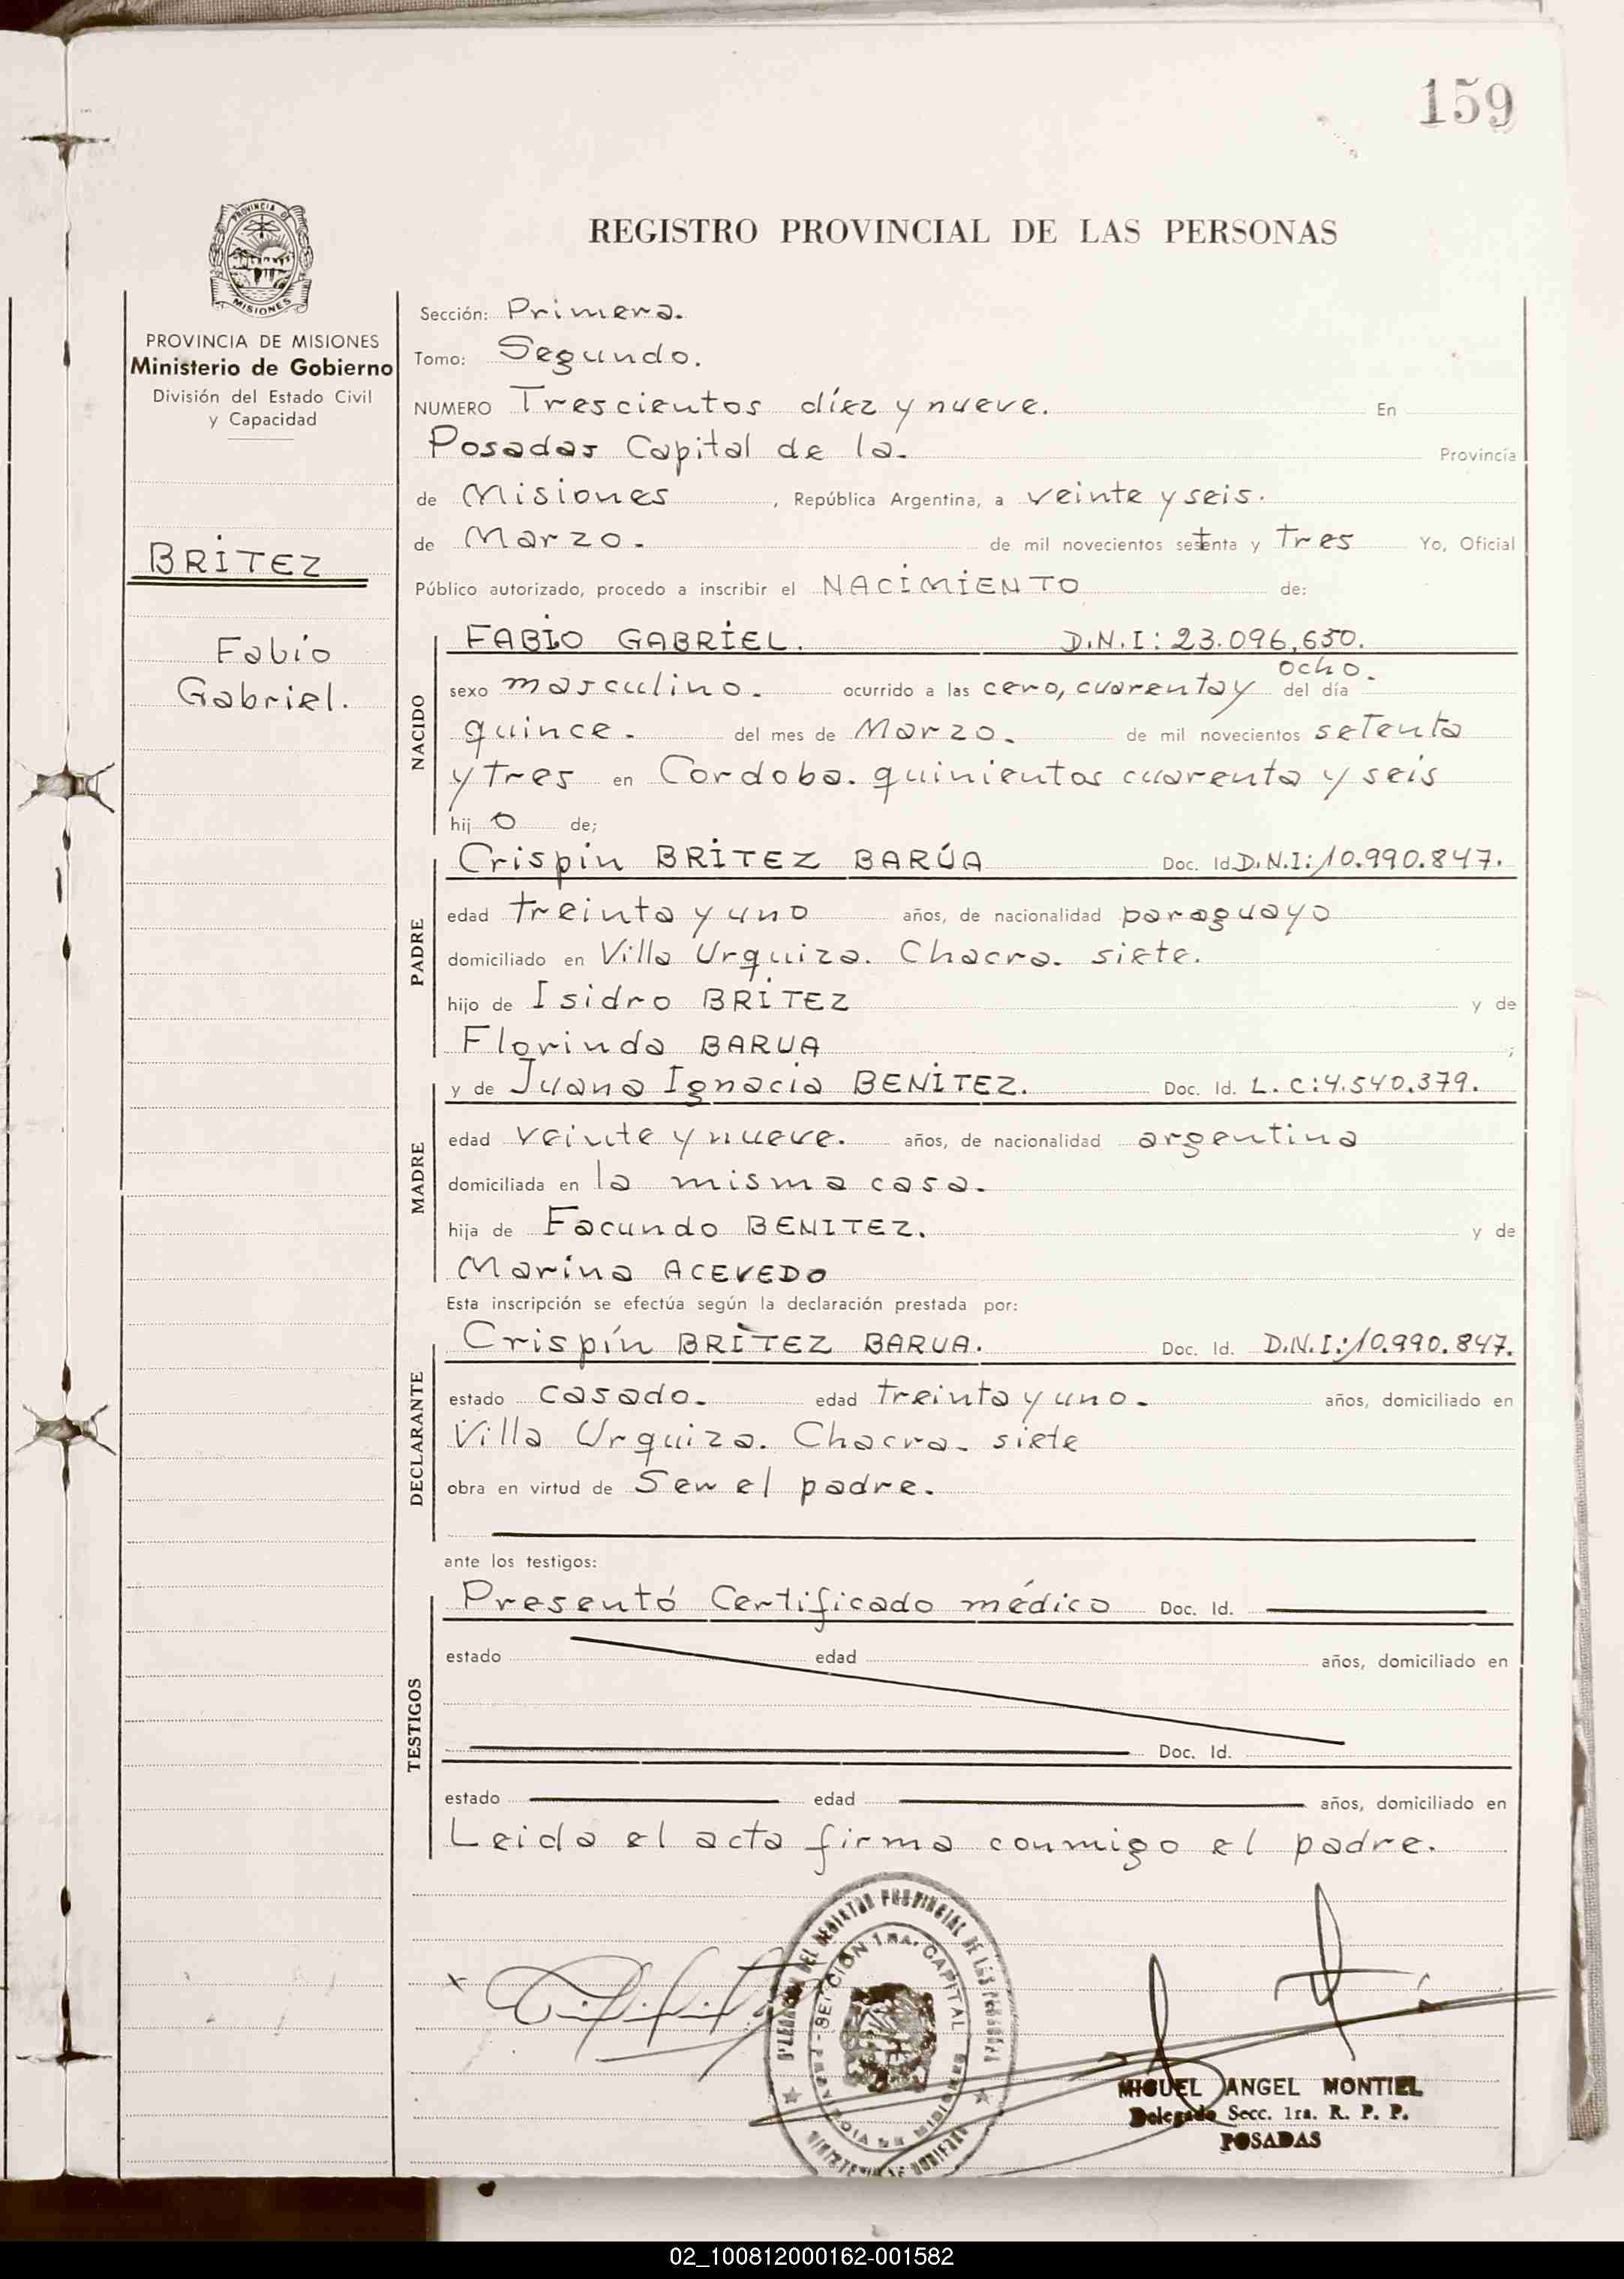 159
PROVINCIA DE
MISIONES
REGISTRO PROVINCIAL DE LAS PERSONAS
PROVINCIA DE MISIONES
Ministerio de Gobierno
División del Estado Civil
y Capacidad
BRITEZ
Fabio
Gabriel.
Sección: Primera.
Tomo: Segundo.
NUMERO Trescientos diez y nueve. En
Posadas Capital de la. Provincia
de Misiones, República Argentina, a veinte y seis.
de Marzo. de mil novecientos setenta y tres Yo, Oficial
Público autorizado, procedo a inscribir el NACIMIENTO de:
NACIDO
FABIO GABRIEL. D.N.I: 23.096.650.
ocho.
sexo masculino. ocurrido a las cero, cuarenta y del día
quince. del mes de Marzo. de mil novecientos setenta
y tres en Cordoba. quinientos cuarenta y seis
hijo de;
PADRE
Crispin BRITEZ BARÚA Doc. Id D.N.I: 10.990.847.
edad treinta y uno años, de nacionalidad paraguayo
domiciliado en Villa Urquiza. Chacra. siete.
hijo de Isidro BRITEZ y de
Florinda BARUA ;
MADRE
y de Juana Ignacia BENITEZ. Doc. Id. L.C: 4.540.379.
edad veinte y nueve. años, de nacionalidad argentina
domiciliada en la misma casa.
hija de Facundo BENITEZ. y de
Marina ACEVEDO
Esta inscripción se efectúa según la declaración prestada por:
DECLARANTE
Crispín BRITEZ BARUA. Doc. Id. D.N.I: 10.990.847.
estado casado. edad treinta y uno. años, domiciliado en
Villa Urquiza. Chacra. siete
obra en virtud de Ser el padre.
ante los testigos:
TESTIGOS
Presentó Certificado médico Doc. Id.
estado edad años, domiciliado en
Doc. Id.
estado edad años, domiciliado en
Leida el acta firma conmigo el padre.
SECCIÓN 1RA. CAPITAL
MIGUEL ANGEL MONTIEL
Delegado Secc. 1ra. R. P. P.
POSADAS
02_100812000162-001582